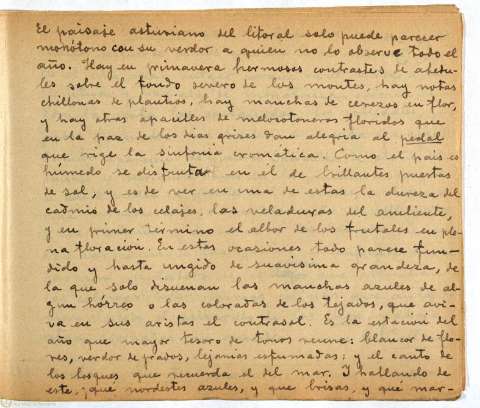 El paisaje asturiano del litoral solo puede parecer
monótono con su verdor a quien no lo observe todo el
año. Hay en primavera hermosos contrastes de abedu-
les sobre el fondo severo de los montes, hay notas
chillonas de plantios, hay manchas de cerezos en flor,
y hay otras apacibles de melocotoneros floridos que
en la paz de los dias grises dan alegria al pedal
que rige la sinfonia cromática. Como el pais es
húmedo se disfruta en él de brillantes puestas
de sol, y es de ver en una de estas la dureza del
cadmio de los celajes, las veladuras del ambiente,
y en primer término el albor de los frutales en ple-
na floración. En estas ocasiones todo parece fun-
dido y hasta ungido de suavisima grandeza, de
la que solo disuenan las manchas azules de al-
gun hórreo o las coloradas de los tejados, que avi-
va en sus aristas el contrasol. Es la estación del
año que mayor tesoro de tonos reune: blancor de flo-
res, verdor de prados, lejanias esfumadas; y el canto de
los bosques que recuerda el del mar. Y hablando de
este, ¡que nordestes azules, y que brisas, y que mar-